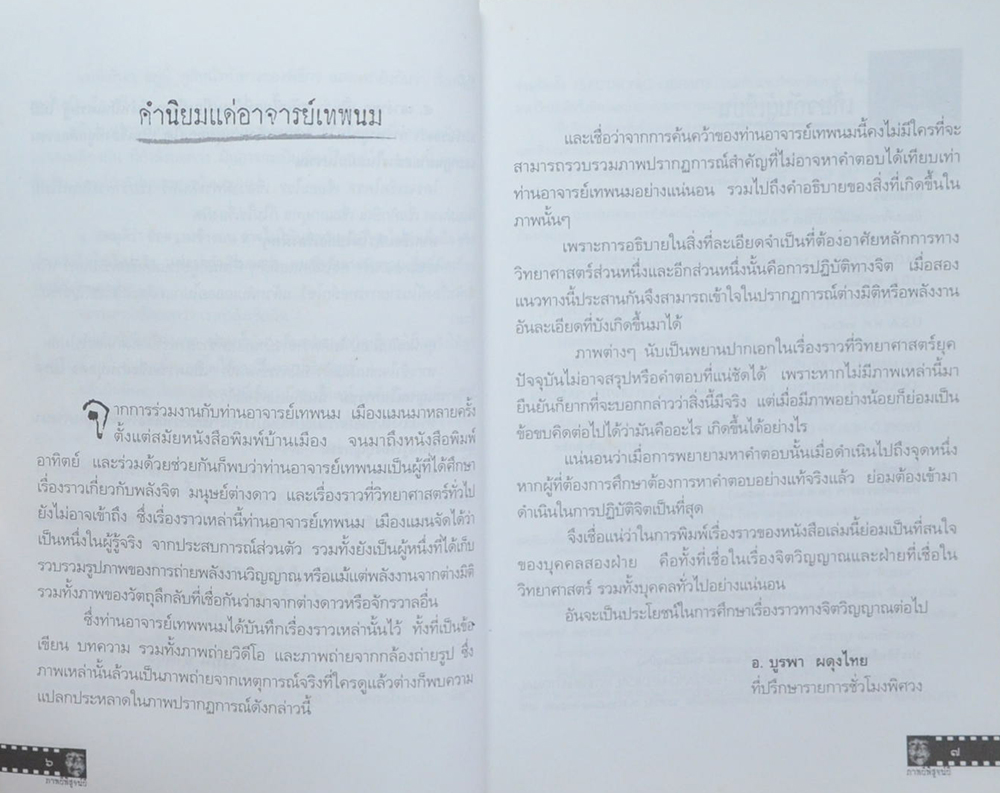 คำนิยมแด่อาจารย์เทพนม
จากการร่วมงานกับท่านอาจารย์เทพนม เมืองแมนมาหลายครั้ง
ตั้งแต่สมัยหนังสือพิมพ์บ้านเมือง จนมาถึงหนังสือพิมพ์
อาทิตย์ และร่วมด้วยช่วยกันก็พบว่าท่านอาจารย์เทพนมเป็นผู้ที่ได้ศึกษา
เรื่องราวเกี่ยวกับพลังจิต มนุษย์ต่างดาว และเรื่องราวที่วิทยาศาสตร์ทั่วไป
ยังไม่อาจเข้าถึง ซึ่งเรื่องราวเหล่านี้ท่านอาจารย์เทพนม เมืองแมนจัดได้ว่า
เป็นหนึ่งในผู้รู้จริง จากประสบการณ์ส่วนตัว รวมทั้งยังเป็นผู้หนึ่งที่ได้เก็บ
รวบรวมรูปภาพของการถ่ายพลังงานวิญญาณ หรือแม้แต่พลังงานจากต่างมิติ
รวมทั้งภาพของวัตถุลึกลับที่เชื่อกันว่ามาจากต่างดาวหรือจักรวาลอื่น
ซึ่งท่านอาจารย์เทพพนมได้บันทึกเรื่องราวเหล่านั้นไว้ ทั้งที่เป็นข้อ
เขียน บทความ รวมทั้งภาพถ่ายวิดีโอ และภาพถ่ายจากกล้องถ่ายรูป ซึ่ง
ภาพเหล่านั้นล้วนเป็นภาพถ่ายจากเหตุการณ์จริงที่ใครดูแล้วต่างก็พบความ
แปลกประหลาดในภาพปรากฏการณ์ดังกล่าวนี้
๖
ภาพพิสูจน์ผี
และเชื่อว่าจากการค้นคว้าของท่านอาจารย์เทพนมนี้คงไม่มีใครที่จะ
สามารถรวบรวมภาพปรากฏการณ์สำคัญที่ไม่อาจหาคำตอบได้เทียบเท่า
ท่านอาจารย์เทพนมอย่างแน่นอน รวมไปถึงคำอธิบายของสิ่งที่เกิดขึ้นใน
ภาพนั้นๆ
เพราะการอธิบายในสิ่งที่ละเอียดจำเป็นที่ต้องอาศัยหลักการทาง
วิทยาศาสตร์ส่วนหนึ่งและอีกส่วนหนึ่งนั้นคือการปฏิบัติทางจิต เมื่อสอง
แนวทางนี้ประสานกันจึงสามารถเข้าใจในปรากฏการณ์ต่างมิติหรือพลังงาน
อันละเอียดที่บังเกิดขึ้นมาได้
ภาพต่างๆ นับเป็นพยานปากเอกในเรื่องราวที่วิทยาศาสตร์ยุค
ปัจจุบันไม่อาจสรุปหรือคำตอบที่แน่ชัดได้ เพราะหากไม่มีภาพเหล่านี้มา
ยืนยันก็ยากที่จะบอกกล่าวว่าสิ่งนี้มีจริง แต่เมื่อมีภาพอย่างน้อยก็ย่อมเป็น
ข้อขบคิดต่อไปได้ว่ามันคืออะไร เกิดขึ้นได้อย่างไร
แน่นอนว่าเมื่อการพยายามหาคำตอบนั้นเมื่อดำเนินไปถึงจุดหนึ่ง
หากผู้ที่ต้องการศึกษาต้องการหาคำตอบอย่างแท้จริงแล้ว ย่อมต้องเข้ามา
ดำเนินในการปฏิบัติจิตเป็นที่สุด
จึงเชื่อแน่ว่าในการพิมพ์เรื่องราวของหนังสือเล่มนี้ย่อมเป็นที่สนใจ
ของบุคคลสองฝ่าย คือทั้งที่เชื่อในเรื่องจิตวิญญาณและฝ่ายที่เชื่อใน
วิทยาศาสตร์ รวมทั้งบุคคลทั่วไปอย่างแน่นอน
อันจะเป็นประโยชน์ในการศึกษาเรื่องราวทางจิตวิญญาณต่อไป
อ. บูรพา ผดุงไทย
ที่ปรึกษารายการชั่วโมงพิศวง
๗
ภาพพิสูจน์ผี